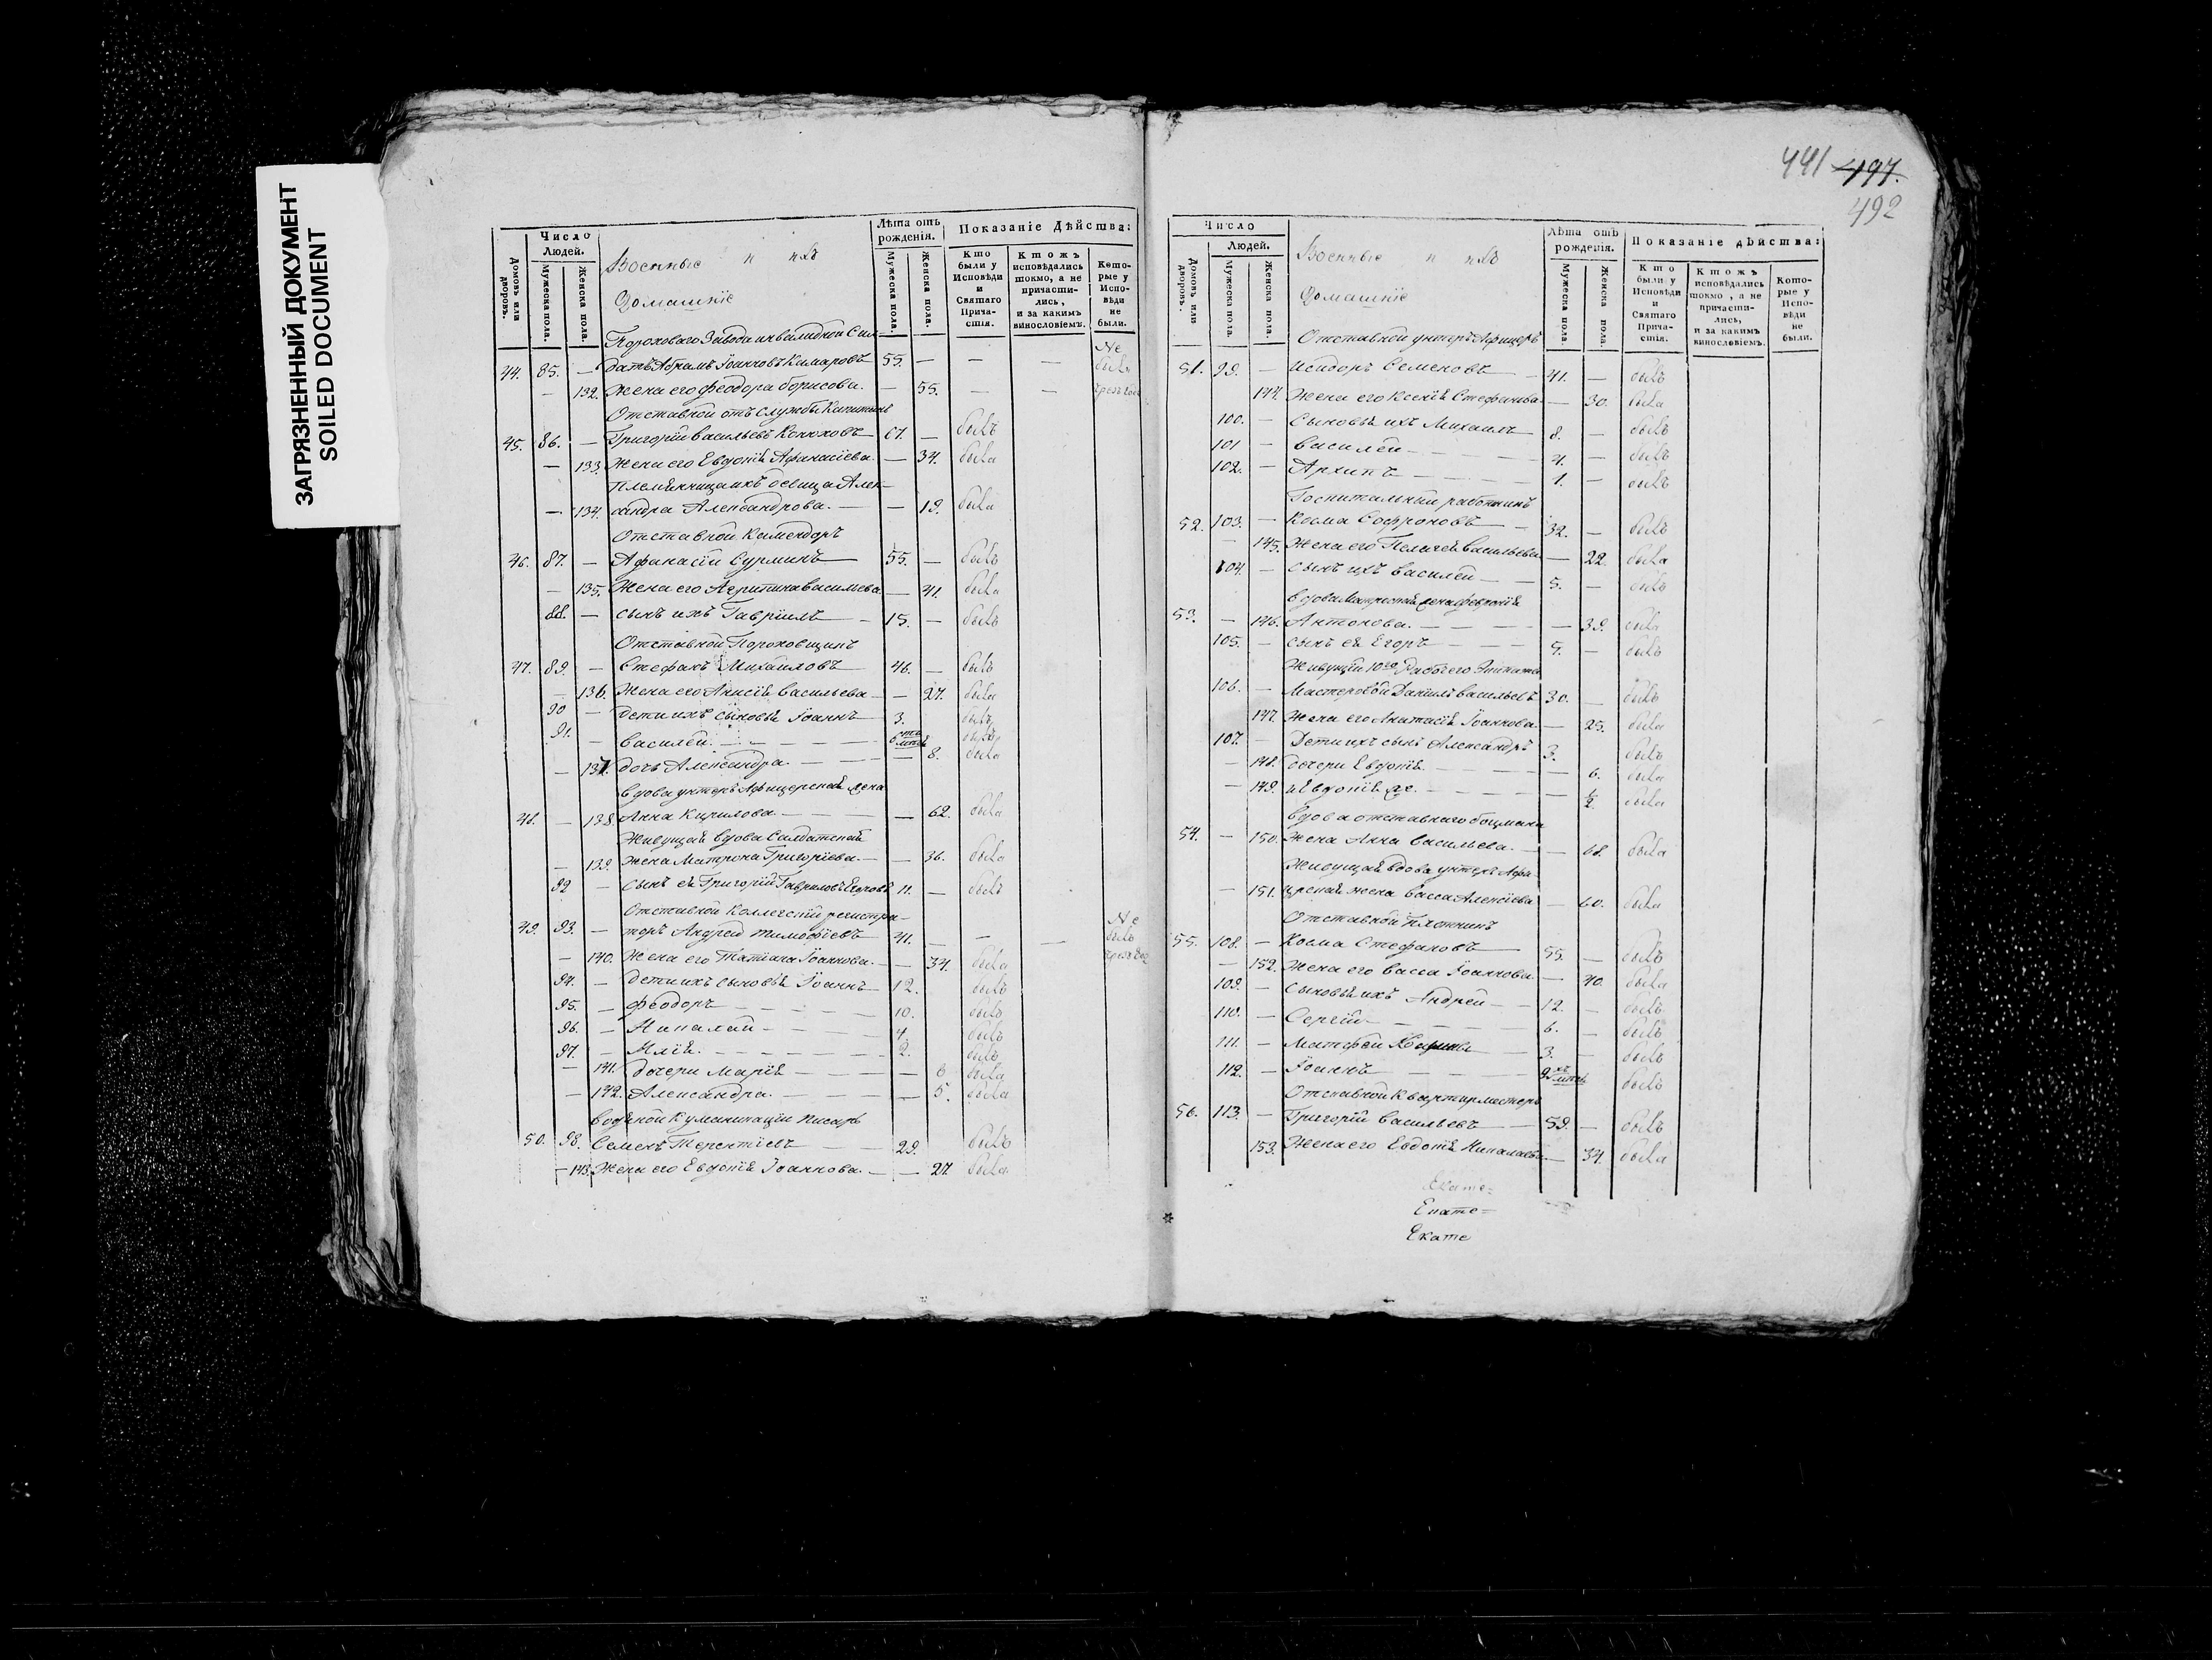 ЗАГРЯЗНЕННЫЙ ДОКУМЕНТ
SOILED DOCUMENT
441 497.
492
Число
Людей.
Домовъ или дворовъ.
Мужеска пола.
Женска пола.
Военные и ихъ
Домашніе
Лѣта отъ рожденія.
Мужеска пола.
Женска пола.
Показаніе Дѣйства:
Кто были у Исповѣди и Святаго Причастія.
Ктожъ исповѣдались токмо, а не причастились, и за какимъ винословіемъ.
Которые у Исповѣди не были.
Пороховаго Завода инвалидной Сол-
44. 85. — датъ Абрамъ Іоанновъ Комаровъ 55. — — — Не
— 132. Жена его Феодора Борисова. — 55. — —
Отставной отъ службы Капитанъ
45. 86. — Григорій Васильевъ Конюховъ 67. — былъ
— 133. Жена его Евдокіѧ Афанасіева. — 34. была
Племянница ихъ девица Алек-
— 134. сандра Александрова. — 19. была
Отставной Камендоръ
46. 87. — Афанасій Сурминъ 55. — былъ
— 135. Жена его Агрипина Васильева — 41. была
88. — сынъ ихъ Гавріилъ 15. — былъ
Отставной Пороховщикъ
47. 89. — Стефанъ Михайловъ 46. — былъ
— 136. Жена его Анисіѧ Васильева — 27. была
90 — дети ихъ сыновьѧ Іоаннъ 3. былъ
91. — Василей. 6 былъ
— 137. дочь Александра. — 8. была
вдова унтеръ Афицерскаѧ жена
48. — 138. Анна Кирилова. — 62. была
Живущаѧ вдова Салдатскаѧ
— 139. жена Матрона Григоріева. — 36. была
92 — сынъ еѧ Григорій Гавриловъ Егоровъ 11. — былъ
Отставной Коллегскій регистра-
49. 93. — торъ Андрей Тимофѣевъ 41. — — — Не былъ
— 140. Жена его Татіана Іоаннова. — 34. была
94. — Дети ихъ сыновьѧ Іоаннъ 12. былъ
95. — Феодоръ 10. былъ
96. — Николай 4. былъ
97. — Иліѧ. 2. былъ
— 141. дочери Маріѧ — 6 была
— 142. Александра. — 5. была
50. 98. Семенъ Терентіевъ 29. былъ
— 143. Жена его Евдокіѧ Іоаннова. — 27. была
Число
Людей.
Домовъ или дворовъ.
Мужеска пола.
Женска пола.
Военные и ихъ
Домашніе
Лѣта отъ рожденія.
Мужеска пола.
Женска пола.
Показаніе дѣйства:
Кто были у Исповѣди и Святаго Причастія.
Ктожъ исповѣдались токмо, а не причастились, и за какимъ винословіемъ.
Которые у Исповѣди не были.
Отставной унтеръ Афицеръ
51. 99. — Исидоръ Семеновъ 41. — былъ
144. Жена его Ксеніѧ Стефанова — 30. была
100. — Сыновьѧ ихъ Михаилъ 8. — былъ
101 — Василей 4. — былъ
102. — Архипъ 1. — былъ
Госпитальный работникъ
52. 103. — Косма Софроновъ 32. — былъ
— 145. Жена его Пелагеѧ Васильева — 22. была
104. — сынъ ихъ Василей 5. — былъ
вдова Матрозскаѧ жена Февроніѧ
53. — 146. Антонова. — 39. была
105. — сынъ еѧ Егоръ — былъ
Живущій 10го Рабочего Экипажа
106. — Мастеровой Даніилъ Васильевъ 30. — былъ
147. Жена его Анатасіѧ Іоаннова — 25. была
107. — Дети ихъ сынъ Александръ 3. былъ
— 148. дочери Евдокіѧ. — 6. была
— 149. и Евдокіѧ же. — 1/2. была
Вдова отставнаго боцмана
54. — 150. Жена Анна Васильева. — 68. была
Живущаѧ вдова унтеръ Афи-
— 151. церскаѧ жена Васса Алексіева — 60. была
Отставной Плотникъ
55. 108. — Косма Стефановъ 55. — былъ
— 152. Жена его Васса Іоаннова — 40. была
109. — Сыновьѧ ихъ Андрей 12. — былъ
110. — Сергій 6. — былъ
111. — Матфей 3. — былъ
112. — Іоаннъ былъ
Отставной Квартирместеръ
56. 113. — Григорій Васильевъ 59. — былъ
153. Жена его Евдокіѧ Николаева — 34. была
Екате=
Екате=
Екате